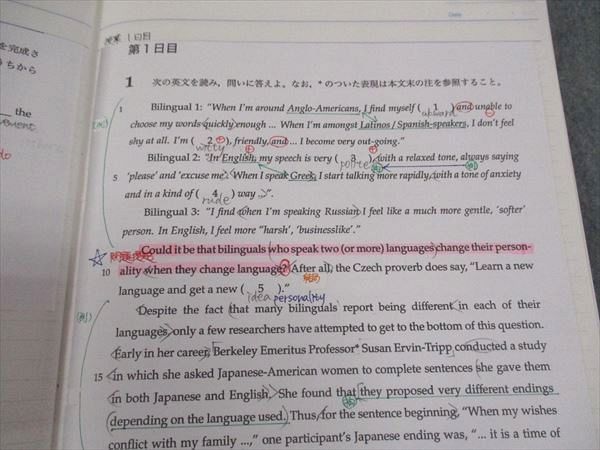 Date
授業 1日目
第1日目
を完成さ
ちから
the
1 次の英文を読み，問いに答えよ。なお，*のついた表現は本文末の注を参照すること。
1 Bilingual 1: "When I'm around Anglo-Americans, I find myself ( 1 ) and unable to
awkward
choose my words quickly enough ... When I'm amongst Latinos / Spanish-speakers, I don't feel
shy at all. I'm ( 2 ), friendly, and ... I become very out-going."
witty
Bilingual 2: "In English, my speech is very ( 3 ), with a relaxed tone, always saying
polite
5 'please' and 'excuse me'. When I speak Greek, I start talking more rapidly, with a tone of anxiety
and in a kind of ( 4 ) way ...".
rude
Bilingual 3: "I find when I'm speaking Russian I feel like a much more gentle, 'softer'
person. In English, I feel more "harsh', 'businesslike'."
Could it be that bilinguals who speak two (or more) languages change their person-
問題提起
10 ality when they change language? After all, the Czech proverb does say, "Learn a new
language and get a new ( 5 )."
idea personality
Despite the fact that many bilinguals report being different in each of their
languages, only a few researchers have attempted to get to the bottom of this question.
Early in her career, Berkeley Emeritus Professor* Susan Ervin-Tripp conducted a study
15 in which she asked Japanese-American women to complete sentences she gave them
in both Japanese and English. She found that they proposed very different endings
depending on the language used. Thus, for the sentence beginning, "When my wishes
conflict with my family ...," one participant's Japanese ending was, "... it is a time of